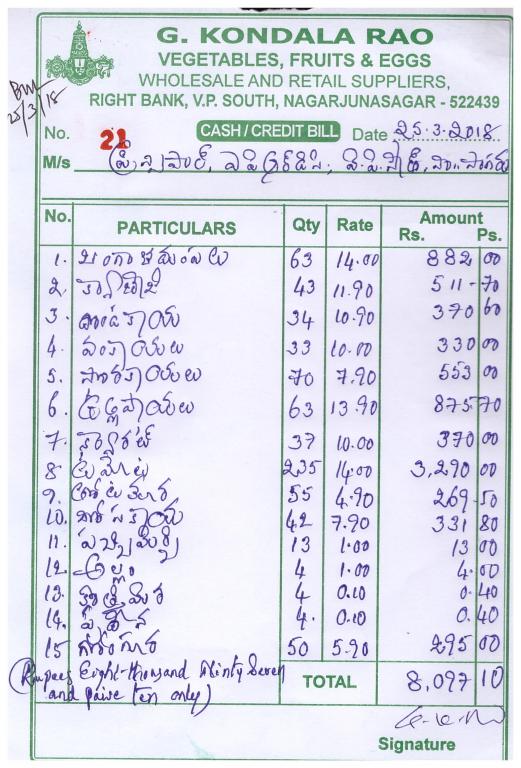 G. KONDALA RAO
VEGETABLES, FRUITS & EGGS
WHOLESALE AND RETAIL SUPPLIERS,
RIGHT BANK, V.P. SOUTH, NAGARJUNASAGAR - 522439
25/3/18
No. 21 CASH / CREDIT BILL Date 25.3.2018
M/s ప్రిన్సిపాల్,
No. PARTICULARS Qty Rate Amount
Rs. Ps.
1. బంగాళదుంపలు 63 14.00 882 00
2. క్యాబేజి 43 11.90 511-70
3. దొండకాయ 34 10.90 370 60
4. వంకాయలు 33 10.00 330 00
5. సొరకాయలు 70 7.90 553 00
6. ఉల్లిపాయలు 63 13.90 875.70
7. క్యారెట్ 37 10.00 370 00
8. టమోట 235 14.00 3,290 00
9. తోటకూర 55 4.90 269.50
10. దోసకాయ 42 7.90 331 80
11. పచ్చిమిర్చి 13 1.00 13 00
12. అల్లం 4 1.00 4.00
13. కొత్తిమీర 4 0.10 0.40
14. పుదీన 4. 0.10 0.40
15 గోంగూర 50 5.90 295 00
(Rupees Eight-thousand Ninty Seven
and paise Ten only)
TOTAL 8,097 10
Signature